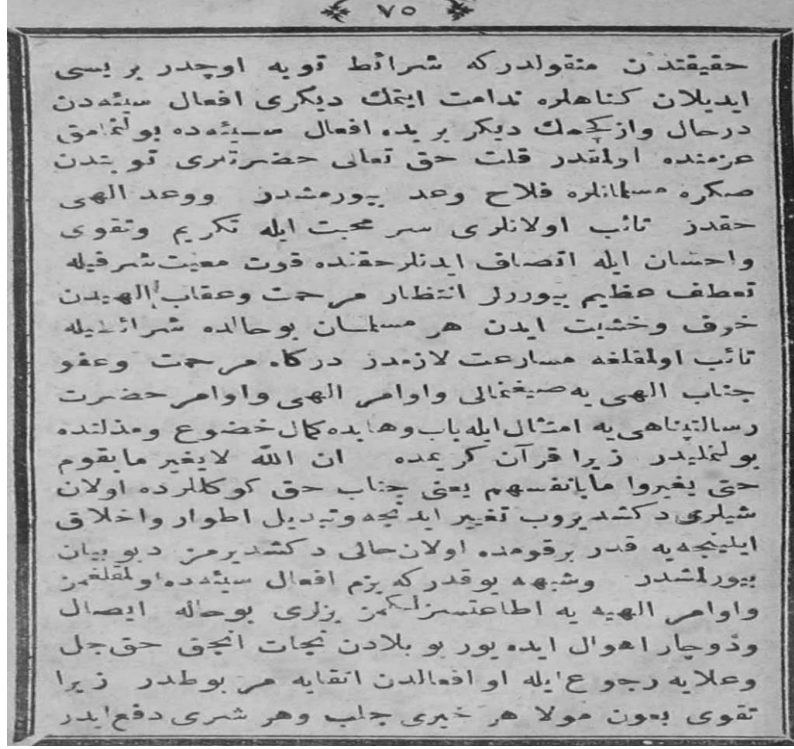 ٧٥
حقیقتدن منقولدرکه شرائط توبه اوچدر بریسی
ایدیلان کناهلره ندامت ایتمك دیکری افعال سیئه‌دن
درحال وازکچمك دیکر بریده افعال سیئه‌ده بولنمامق
عزمنده اولمقدر قلت حق تعالی حضرتلری توبه‌دن
صکره مسلمانلره فلاح وعد بیورمشدر ووعد الهی
حقدر تائب اولانلری سر محبت ایله تکریم وتقوی
واحسان ایله اتصاف ایدنلر حقنده قوت معیت شرفیله
تعطف عظیم بیوررلر انتظار مرحمت وعقاب الهیدن
خوف وخشیت ایدن هر مسلمان بوحالده شرائطیله
تائب اولمقلغه مسارعت لازمدر درکاه مرحمت وعفو
جناب الهی یه صیغنمالی واوامر الهی واوامر حضرت
رسالتپناهی یه امتثال ایله باب وهابده کمال خضوع ومذلتده
بولنملیدر زیرا قرآن کریمده ان الله لایغیر مابقوم
حتی یغیروا مابانفسهم یعنی جناب حق کوکللرده اولان
شیلری دکشدیروب تغییر ایدنجه وتبدیل اطوار واخلاق
ایلینجه‌یه قدر برقومده اولان حالی دکشدیرمز دیو بیان
بیورلمشدر وشبهه یوقدرکه بزم افعال سیئه‌ده اولمقلغمز
واوامر الهیه یه اطاعتسزلکمز بزلری بوحاله ایصال
ودوچار اهوال ایده‌یور بو بلادن نجات انجق حق جل
وعلایه رجوع ایله او افعالدن اتقایه مربوطدر زیرا
تقوی بعون مولا هر خیری جلب وهر شری دفع ایدر